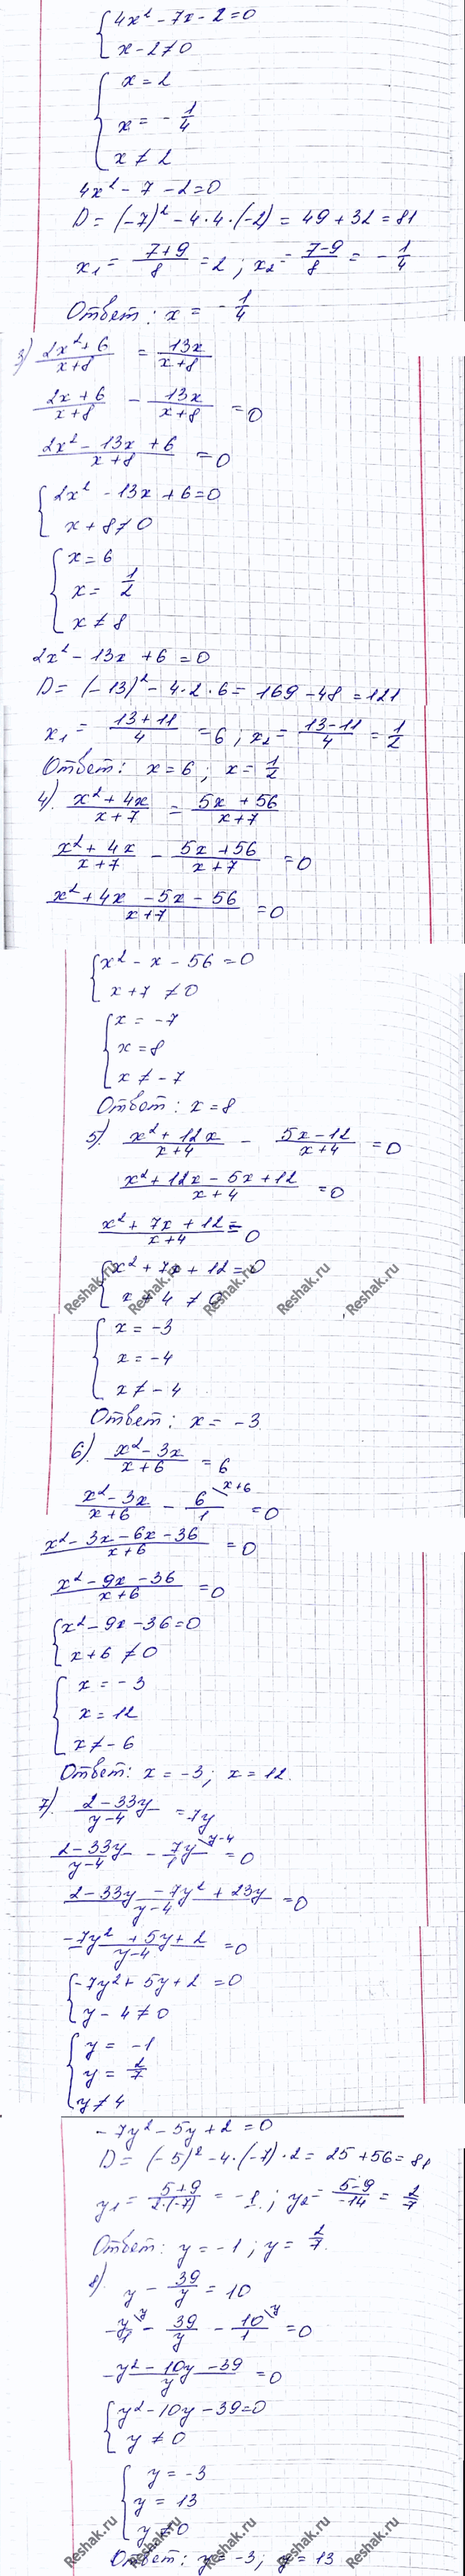 4x² - 7x - 2 = 0
x - 2 ≠ 0
x = 2
x = - 1/4
x ≠ 2
4x² - 7 - 2 = 0
D = (-7)² - 4·4·(-2) = 49 + 32 = 81
x₁ = (7+9)/8 = 2 ; x₂ = (7-9)/8 = - 1/4
Ответ: x = - 1/4
3) (2x² + 6)/(x+8) = 13x/(x+8)
(2x + 6)/(x+8) - 13x/(x+8) = 0
(2x² - 13x + 6)/(x+8) = 0
2x² - 13x + 6 = 0
x + 8 ≠ 0
x = 6
x = 1/2
x ≠ 8
2x² - 13x + 6 = 0
D = (-13)² - 4·2·6 = 169 - 48 = 121
x₁ = (13+11)/4 = 6 ; x₂ = (13-11)/4 = 1/2
Ответ: x = 6 ; x = 1/2
4). (x² + 4x)/(x+7) = (5x + 56)/(x+7)
(x² + 4x)/(x+7) - (5x + 56)/(x+7) = 0
(x² + 4x - 5x - 56)/(x+7) = 0
x² - x - 56 = 0
x + 7 ≠ 0
x = -7
x = 8
x ≠ -7
Ответ: x = 8
5). (x² + 12x)/(x+4) - (5x - 12)/(x+4) = 0
(x² + 12x - 5x + 12)/(x+4) = 0
(x² + 7x + 12)/(x+4) = 0
x² + 7x + 12 = 0
x + 4 ≠ 0
Reshak.ru Reshak.ru Reshak.ru Reshak.ru Reshak.ru
x = -3
x = -4
x ≠ -4
Ответ: x = -3
6). (x² - 3x)/(x+6) = 6
(x² - 3x)/(x+6) - 6/1 \x+6 = 0
(x² - 3x - 6x - 36)/(x+6) = 0
(x² - 9x - 36)/(x+6) = 0
x² - 9x - 36 = 0
x + 6 ≠ 0
x = -3
x = 12
x ≠ -6
Ответ: x = -3; x = 12.
7). (2 - 33y)/(y-4) = 7y
(2 - 33y)/(y-4) - 7y/1 \y-4 = 0
(2 - 33y - 7y² + 23y)/(y-4) = 0
(-7y² + 5y + 2)/(y-4) = 0
-7y² + 5y + 2 = 0
y - 4 ≠ 0
y = -1
y = 2/7
y ≠ 4
-7y² - 5y + 2 = 0
D = (-5)² - 4·(-7)·2 = 25 + 56 = 81
y₁ = (5+9)/(2·(-7)) = -1. ; y₂ = (5-9)/-14 = 2/7
Ответ: y = -1 ; y = 2/7.
8). y - 39/y = 10
y/1 \y - 39/y - 10/1 \y = 0
(y² - 10y - 39)/y = 0
y² - 10y - 39 = 0
y ≠ 0
y = -3
y = 13
y ≠ 0
Ответ: y = -3; y = 13
Reshak.ru Reshak.ru Reshak.ru Reshak.ru Reshak.ru